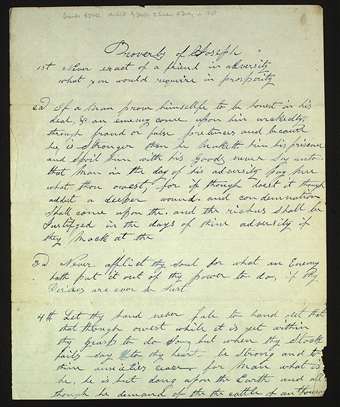 Proverbs of Joseph
1st Never exact of a friend in adversity
what you would require in prosperity
2d If a man prove himselfe to be honest in his
deal, & an enemy come upon him wrekedly,
through fraud or false pretences and because
he is stronger than he maketh him his prisoner
and spoil him with his goods, never say unto
that man in the day of his adversity pay me
what thou owest for if thou doest it thou
addest a deeper wound, and condemnation
shall come upon the. and the riches shall be
justified in the days of thine adversity if
they mock at the
3d Never afflict thy soul for what an Enemy
hath put it out of thy power to do, if thy
desires are ever so Just
4th Let thy hand never fale to hand out that
that though owest while it is yet within
thy grasp to do so, but when thy Stock
fails say to thy heart be strong and to
thine anxieties cease for man what is
he, he is but dong upon the Earth and all
though he demand of the the cattle of an thousand